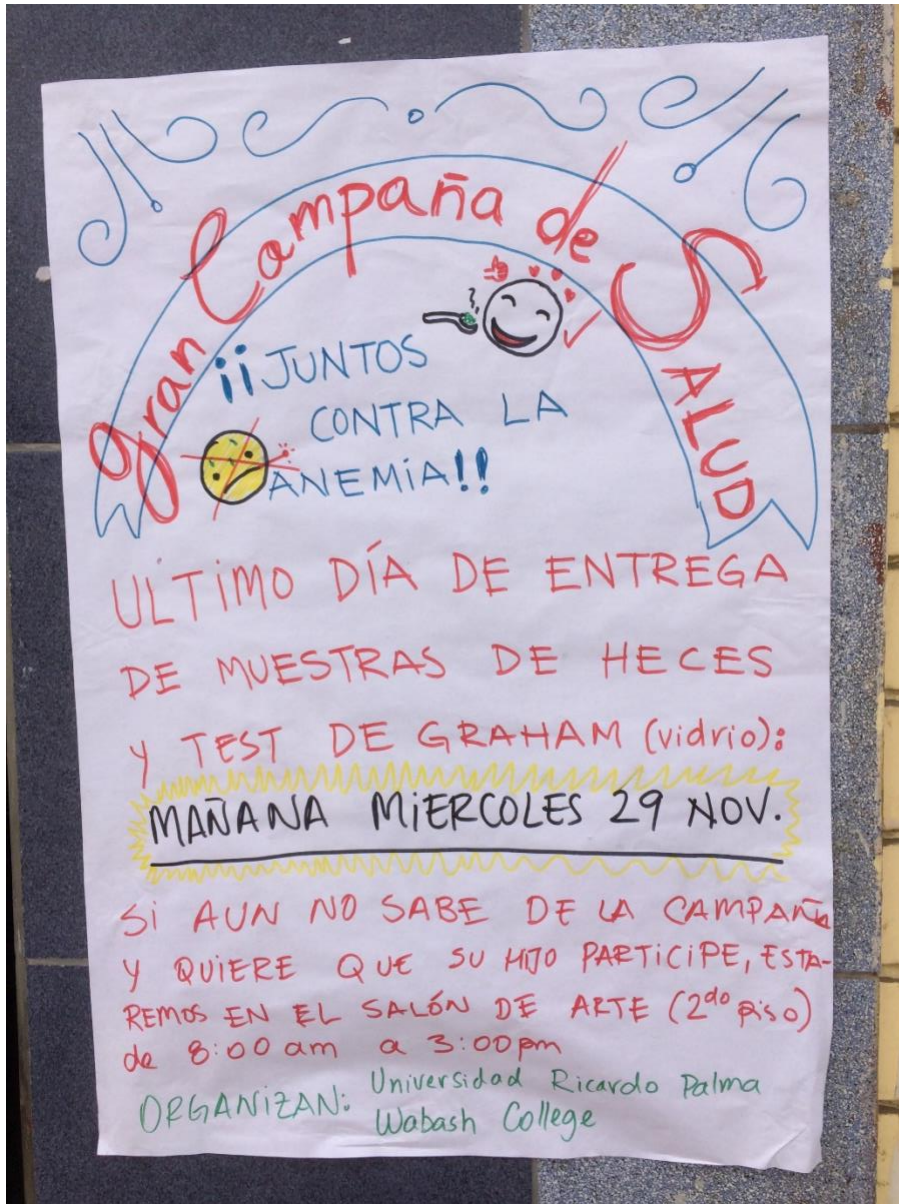 Gran Campaña de SALUD
¡¡JUNTOS
CONTRA LA
ANEMIA!!
ULTIMO DÍA DE ENTREGA
DE MUESTRAS DE HECES
Y TEST DE GRAHAM (vidrio):
MAÑANA MIERCOLES 29 NOV.
SI AUN NO SABE DE LA CAMPAÑA
Y QUIERE QUE SU HIJO PARTICIPE, ESTA-
REMOS EN EL SALÓN DE ARTE (2do piso)
de 8:00 am a 3:00 pm
ORGANIZAN: Universidad Ricardo Palma
Wabash College